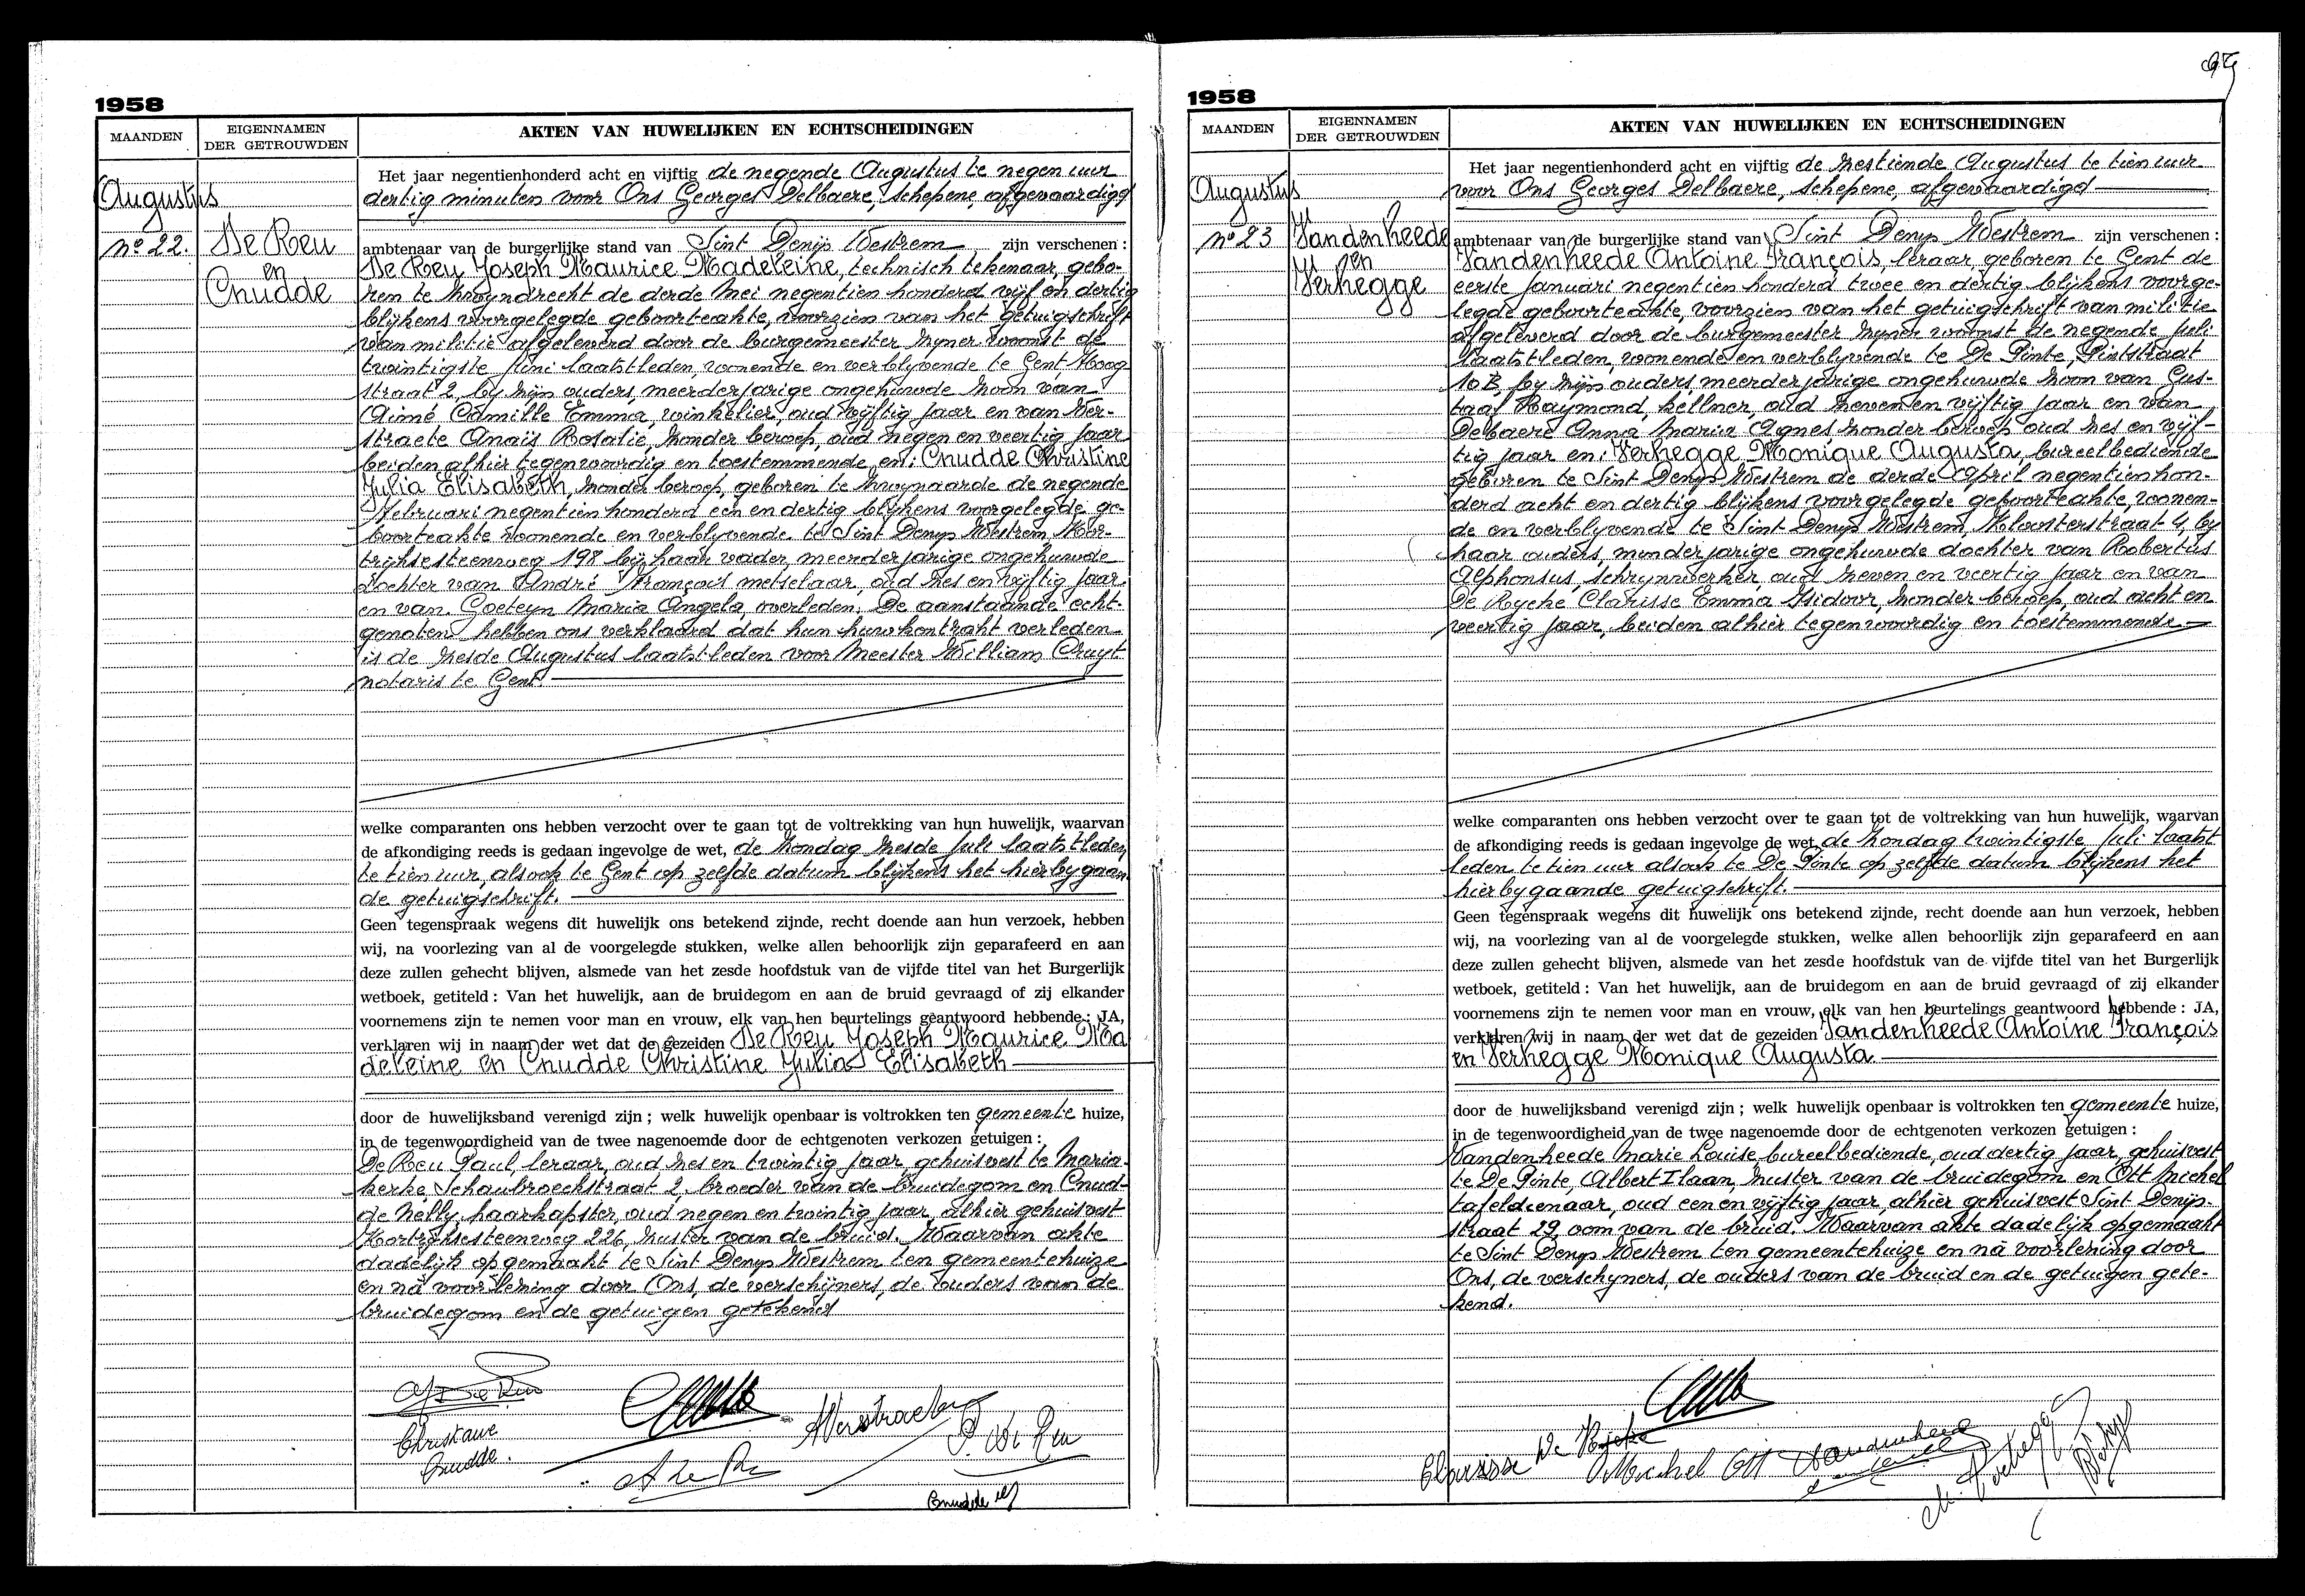 1958
MAANDEN
EIGENNAMEN
DER GETROUWDEN
AKTEN VAN HUWELIJKEN EN ECHTSCHEIDINGEN
Augustus
nº 22.
De Reu
en
Cnudde
Het jaar negentienhonderd acht en vijftig de negende Augustus te negen uur
dertig minuten voor Ons Georges Delbaere, schepene, afgevaardigd
ambtenaar van de burgerlijke stand van Sint Denijs Westrem zijn verschenen :
De Reu Joseph Maurice Madeleine, technisch tekenaar, gebo-
ren te Zwyndrecht de derde Mei negentien honderd vijf en dertig
blijkens voorgelegde geboorteakte, voorzien van het getuigschrift
van militie afgeleverd door de burgemeester zyner woonst de
twintigste Juni laatstleden, wonende en verblyvende te Gent Hoog
straat 2, by zijn ouders, meerderjarige ongehuwde zoon van
Aimé Camille Emma, winkelier, oud vijftig jaar en van Ver-
straete Anaïs Rosalie, zonder beroep, oud negen en veertig jaar
beiden alhier tegenwoordig en toestemmende, en: Cnudde Christine
Julia Elisabeth, zonder beroep, geboren te Zwynaarde de negende
Februari negentien honderd een en dertig blijkens voorgelegde ge-
boorteakte wonende en verblyvende te Sint Denys Westrem, Kor-
trijksesteenweg 198 bij haar vader, meerderjarige ongehuwde
dochter van André François metselaar, oud zes en vijftig jaar
en van Goeteyn Maria Angela, overleden. De aanstaande echt-
genoten hebben ons verklaard dat hun huwkontrakt verleden
is de zesde Augustus laatstleden voor Meester William Cruyt
notaris te Gent.
welke comparanten ons hebben verzocht over te gaan tot de voltrekking van hun huwelijk, waarvan
de afkondiging reeds is gedaan ingevolge de wet, de zondag zesde Juli laatstleden
te tien uur, alsook te Gent op zelfde datum blijkens het hierbygaan
de getuigschrift.
Geen tegenspraak wegens dit huwelijk ons betekend zijnde, recht doende aan hun verzoek, hebben
wij, na voorlezing van al de voorgelegde stukken, welke allen behoorlijk zijn geparafeerd en aan
deze zullen gehecht blijven, alsmede van het zesde hoofdstuk van de vijfde titel van het Burgerlijk
wetboek, getiteld : Van het huwelijk, aan de bruidegom en aan de bruid gevraagd of zij elkander
voornemens zijn te nemen voor man en vrouw, elk van hen beurtelings geantwoord hebbende : JA,
verklaren wij in naam der wet dat de gezeiden De Reu Joseph Maurice Ma
deleine en Cnudde Christine Julia Elisabeth
door de huwelijksband verenigd zijn ; welk huwelijk openbaar is voltrokken ten gemeente huize,
in de tegenwoordigheid van de twee nagenoemde door de echtgenoten verkozen getuigen :
De Reu Paul, leraar, oud zes en twintig jaar, gehuisvest te Maria-
kerke, Schaubroeckstraat 2, broeder van de bruidegom en Cnud-
de Nelly, haarkapster, oud negen en twintig jaar, alhier gehuisvest
Kortrijksesteenweg 226, zuster van de bruid. Waarvan akte
dadelijk opgemaakt te Sint Denys Westrem ten gemeentehuize
en nà voorlezing door Ons, de verschijners, de ouders van de
bruidegom en de getuigen getekend
Christiane
Cnudde.
AVerstraete
P. De Reu
A De Reu
Cnudde
1958
MAANDEN
EIGENNAMEN
DER GETROUWDEN
AKTEN VAN HUWELIJKEN EN ECHTSCHEIDINGEN
Augustus
nº 23
Vandenheede
en
Verhegge
Het jaar negentienhonderd acht en vijftig de zestiende Augustus te tien uur
voor Ons Georges Delbaere, schepene, afgevaardigd
ambtenaar van de burgerlijke stand van Sint Denys Westrem zijn verschenen :
Vandenheede Antoine François, leraar, geboren te Gent de
eerste Januari negentien honderd twee en dertig blijkens voorge-
legde geboorteakte, voorzien van het getuigschrift van militie
afgeleverd door de burgemeester zyner woonst de negende Juli
laatstleden, wonende en verblyvende te De Pinte, Pintstraat
10 B, by zijn ouders, meerderjarige ongehuwde zoon van Gus-
taaf Raymond, kellner, oud zeven en vijftig jaar en van
Debaere Anna Maria Agnes, zonder beroep oud zes en vijf-
tig jaar en: Verhegge Monique Augusta, bureelbediende
geboren te Sint Denys Westrem de derde April negentienhon-
derd acht en dertig blijkens voorgelegde geboorteakte, wonen-
de en verblyvende te Sint Denys Westrem, Kloosterstraat 4, by
haar ouders, minderjarige ongehuwde dochter van Robertus
Alphonsus, schrynwerker, oud zeven en veertig jaar en van
De Rycke Clarisse Emma Isidoor, zonder beroep, oud acht en
veertig jaar, beiden alhier tegenwoordig en toestemmende
welke comparanten ons hebben verzocht over te gaan tot de voltrekking van hun huwelijk, waarvan
de afkondiging reeds is gedaan ingevolge de wet de zondag twintigste Juli laatst
leden te tien uur alsook te De Pinte op zelfde datum blijkens het
hierbygaande getuigschrift.
Geen tegenspraak wegens dit huwelijk ons betekend zijnde, recht doende aan hun verzoek, hebben
wij, na voorlezing van al de voorgelegde stukken, welke allen behoorlijk zijn geparafeerd en aan
deze zullen gehecht blijven, alsmede van het zesde hoofdstuk van de vijfde titel van het Burgerlijk
wetboek, getiteld : Van het huwelijk, aan de bruidegom en aan de bruid gevraagd of zij elkander
voornemens zijn te nemen voor man en vrouw, elk van hen beurtelings geantwoord hebbende : JA,
verklaren wij in naam der wet dat de gezeiden Vandenheede Antoine François
en Verhegge Monique Augusta
door de huwelijksband verenigd zijn ; welk huwelijk openbaar is voltrokken ten gemeente huize,
in de tegenwoordigheid van de twee nagenoemde door de echtgenoten verkozen getuigen :
Vandenheede Marie Louise bureelbediende, oud dertig jaar, gehuisvest
te De Pinte, Albert I laan, zuster van de bruidegom en Ott Michel
tafeldienaar, oud een en vijftig jaar, alhier gehuisvest Sint Denijs-
straat 29, oom van de bruid. Waarvan akte dadelijk opgemaakt
te Sint Denys Westrem ten gemeentehuize en nà voorlezing door
Ons, de verschyners, de ouders van de bruid en de getuigen gete-
kend.
Clarisse De Rycke
Michel Ott
Vandenheede
M. Verhegge